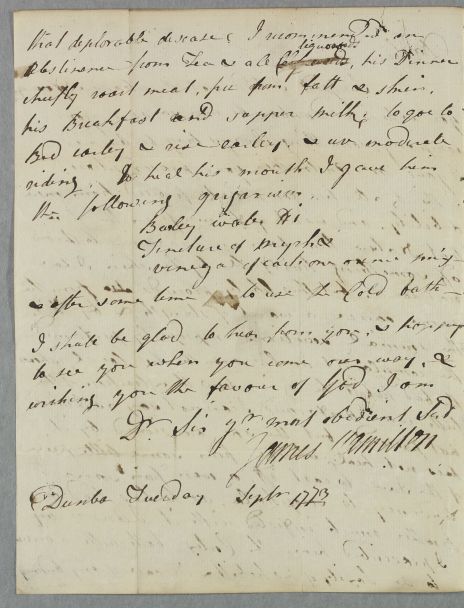 that deplorable disease; I recommended an
liquors
Abstinence from Tea & all his Dinner
chiefly roast meat, free from fatt & skin,
his Breakfast and supper milk; to goe to
Bed earley & rise earley, & use moderate
riding. To heal his mouth I gave him
the following gargarism.
Barley water ℔i
Tincture of Myrh &
vinegar of each one ounce mix
& after some time to use the Cold bath—
I shall be glad to hear from you, & hopping
to see you when you come our way, &
wishing you the favour of God, I am
Dr Sir yr most obedient Sert
James Hamilton
Dunbar Tuesday Septr 1773